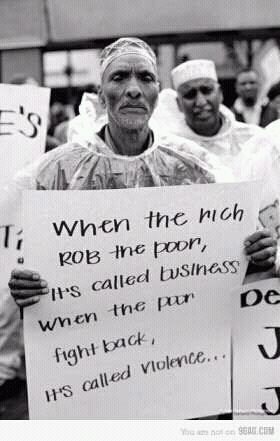 E'S
When the rich
ROB the poor,
it's called business
when the poor
fight back,
it's called violence...
De
J
J
You are not on 9GAG.COM